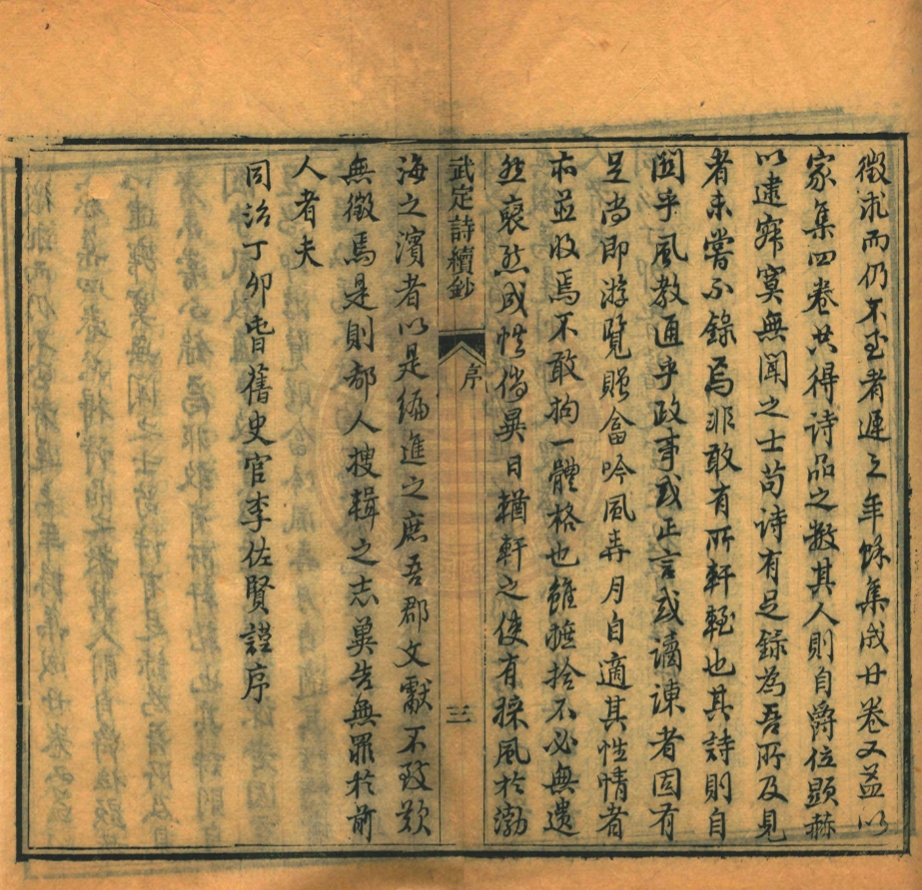 徵求而仍不至者遲之年餘集成廿卷又益以
家集四卷共得詩品之數其人則自爵位顯赫
以逮寂寞無聞之士苟詩有足錄為吾所及見
者未嘗不錄焉非敢有所軒輊也其詩則自
關乎風教通乎政事或正言或譎諫者固有
足尚即游覽贈答吟風弄月自適其性情者
亦並收焉不敢拘一體格也雖摭拾不必無遺
然裒然成帙倘異日輶軒之使有採風於渤
武定詩續鈔
序
三
海之濱者以是編進之庶吾郡文獻不致歎
無徵焉是則鄙人搜輯之志冀告無罪於前
人者夫
同治丁卯春舊史官李佐賢謹序